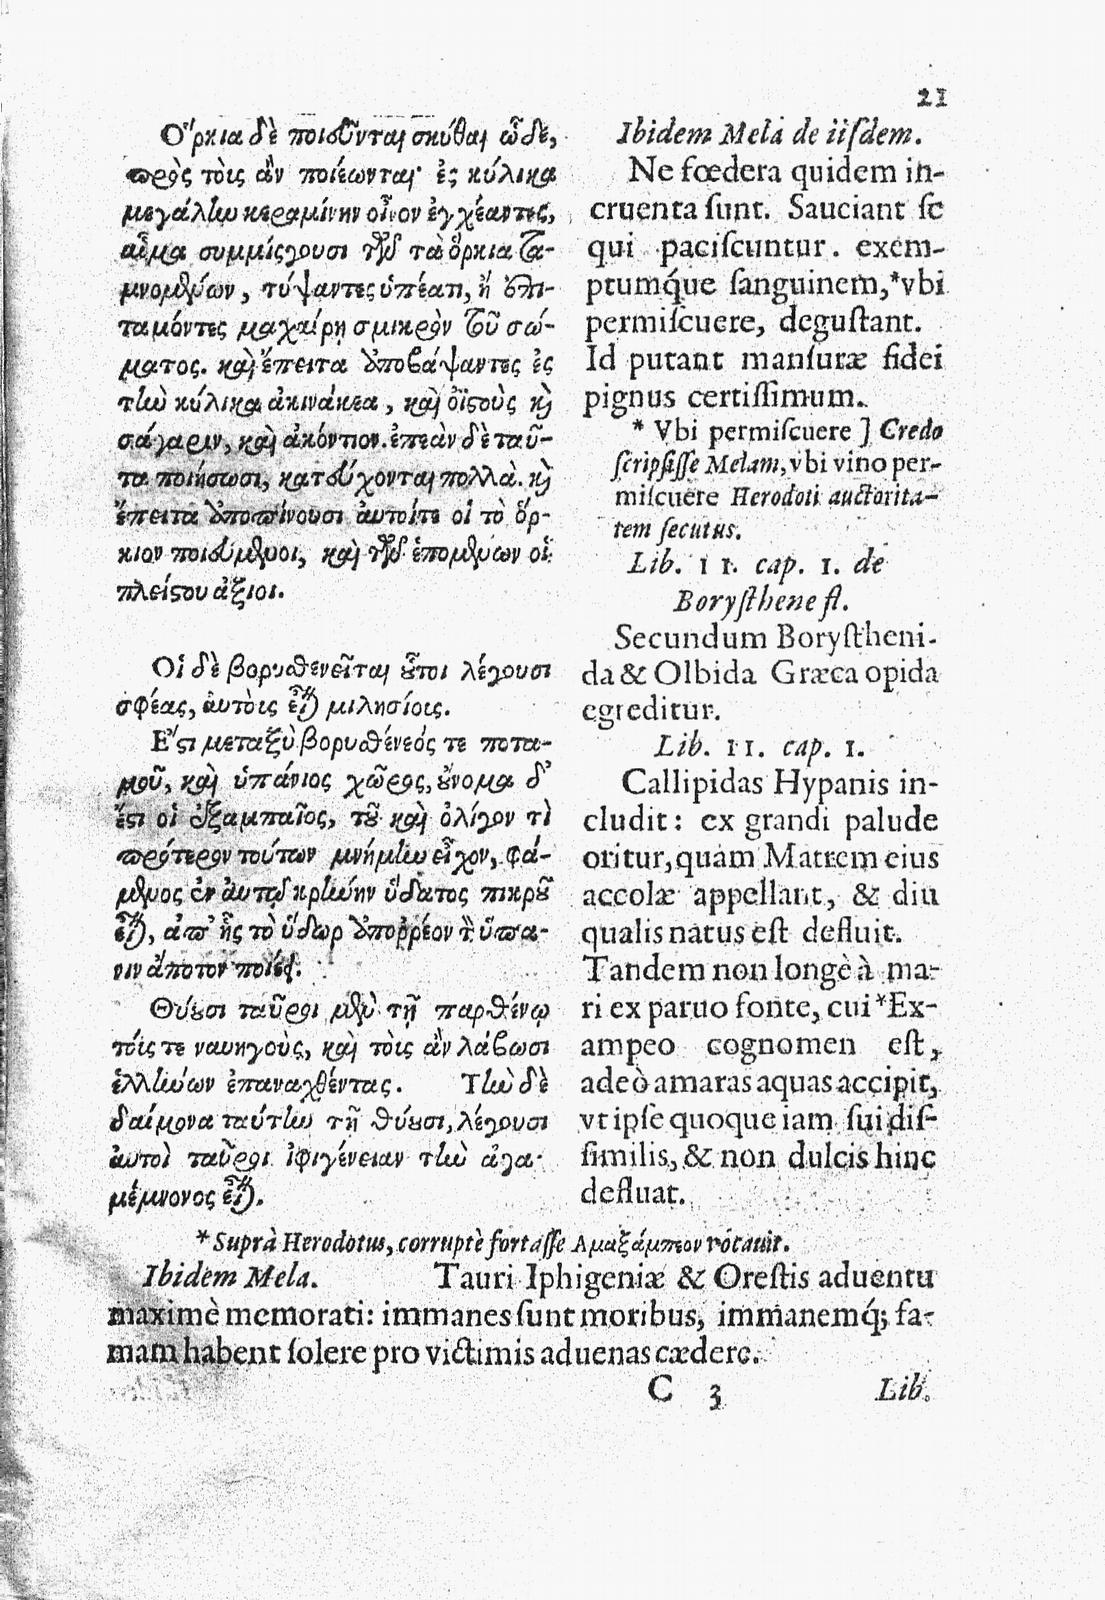 21
Ὅρκια δὲ ποιοῦνται σκύθαι ὧδε,
πρὸς τοὶς ἂν ποιέωνται· ἐς κύλικα
μεγάλην κεραμίνην οἶνον ἐγχέαντες,
αἷμα συμμίσγουσι τῶν τὰ ὅρκια τα-
μνομένων, τύψαντες ὑπέατι, ἢ ἐπι-
ταμόντες μαχαίρῃ σμικρὸν τοῦ σώ-
ματος. καὶ ἔπειτα ἀποβάψαντες ἐς
τὴν κύλικα ἀκινάκεα, καὶ ὀϊστοὺς καὶ
σάγαριν, καὶ ἀκόντιον. ἐπεὰν δὲ ταῦ-
τα ποιήσωσι, κατεύχονται πολλὰ. καὶ
ἔπειτα ἀποπίνουσι ἀυτοίτε οἱ τὸ ὅρ-
κιον ποιεύμενοι, καὶ τῶν ἑπομένων οἱ
πλείστου ἄξιοι.
Οἱ δὲ βορυσθενεῖται οὗτοι λέγουσι
σφέας, ἀυτοὶς εἶναι μιλησίοις.
Ἔστι μεταξὺ βορυσθένεός τε ποτα-
μοῦ, καὶ ὑπάνιος χῶρος, οὔνομα δ'
ἔστι οἱ ἐξαμπαῖος, τοῦ καὶ ὀλίγον τὶ
πρότερον τούτων μνήμην εἶχον, φά-
μενος ἐν ἀυτῷ κρήνην ὕδατος πικροῦ
εἶναι, ἀπ' ἧς τὸ ὕδωρ ἀποῤῥέον τὸν ὕπα-
νιν ἄποτον ποιέει.
Θύουσι ταῦροι μὲν τῇ παρθένῳ
τόις τε ναυηγοὺς, καὶ τοὶς ἂν λάβωσι
ἑλλήνων ἐπαναχθέντας. Τὴν δὲ
δαίμονα ταύτην τῇ θύουσι, λέγουσι
ἀυτοὶ ταῦροι ἰφιγένειαν τὴν ἀγα-
μέμνονος εἶναι.
Ibidem Mela de iisdem.
Ne fœdera quidem in-
cruenta ſunt. Sauciant ſe
qui paciſcuntur. exem-
ptumq́ue ſanguinem,*vbi
permiſcuere, deguſtant.
Id putant manſuræ fidei
pignus certiſſimum.
* Vbi permiſcuere ] Credo
ſcripſiſſe Melam, vbi vino per-
miſcuere Herodoti auctorita-
tem ſecutus.
Lib. 11. cap. 1. de
Boryſthene fl.
Secundum Boryſtheni-
da & Olbida Græca opida
egreditur.
Lib. 11. cap. 1.
Callipidas Hypanis in-
cludit: ex grandi palude
oritur, quam Matrem eius
accolæ appellant, & diu
qualis natus eſt defluit.
Tandem non longè à ma-
ri ex paruo fonte, cui *Ex-
ampeo cognomen eſt,
adeò amaras aquas accipit,
vt ipſe quoque iam ſui diſ-
ſimilis, & non dulcis hinc
defluat.
* Suprà Herodotus, corruptè fortaſſe Αμαξάμπεον vocauit.
Ibidem Mela. Tauri Iphigeniæ & Oreſtis aduentu
maximè memorati: immanes ſunt moribus, immanemq́; fa-
mam habent ſolere pro victimis aduenas cædere.
C 3 Lib.